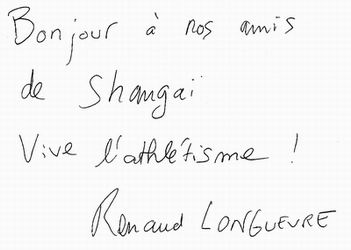 Bonjour à nos amis
de Shangaï
Vive l'athlétisme !
Renaud LONGUEVRE